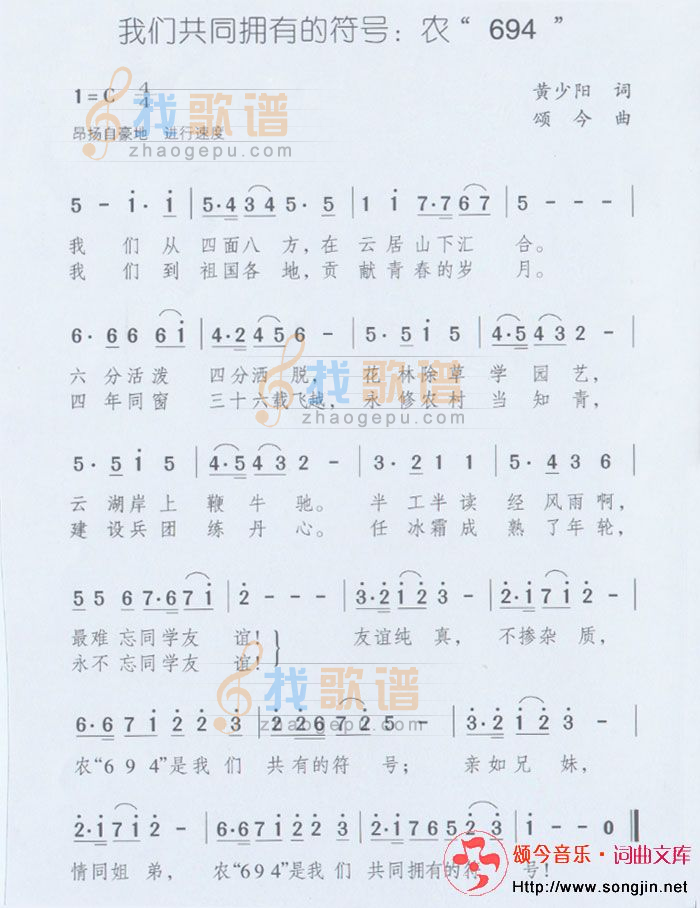 我们共同拥有的符号：农“694”
1=C 4/4
黄少阳 词
昂扬自豪地 进行速度
颂今 曲
找歌谱
zhaogepu.com
5 - i· i | 5·4 3 4 5· 5 | 1 i 7·7 6 7 | 5 - - - |
我们从四面八方，在云居山下汇合。
我们到祖国各地，贡献青春的岁月。
6· 6 6 6 i | 4·2 4 5 6 - | 5· 5 i 5 | 4·5 4 3 2 - |
六分活泼 四分洒脱，花林除草学园艺，
四年同窗 三十六载飞越，永修农村当知青，
找歌谱
zhaogepu.com
5· 5 i 5 | 4·5 4 3 2 - | 3· 2 1 1 | 5· 3 5 6 |
云湖岸上鞭牛驰。半工半读经风雨啊，
建设兵团练丹心。任冰霜成熟了年轮，
5 5 6 7·6 7 i | 2 - - - | 3·2 i 2 3 - | 2·i 7 i 2 - |
最难忘同学友谊！友谊纯真，不掺杂质，
永不忘同学友谊！
找歌谱
zhaogepu.com
6·6 7 i 2 2 3 | 2 2 6 7 2 5 - | 3·2 i 2 3 - |
农“694”是我们共有的符号；亲如兄妹，
2·i 7 i 2 - | 6·6 7 i 2 2 3 | 2·i 7 6 5 2 3 | i - - 0 ‖
情同姐弟，农“694”是我们共同拥有的符号！
颂今音乐·词曲文库
Http://www.songjin.net